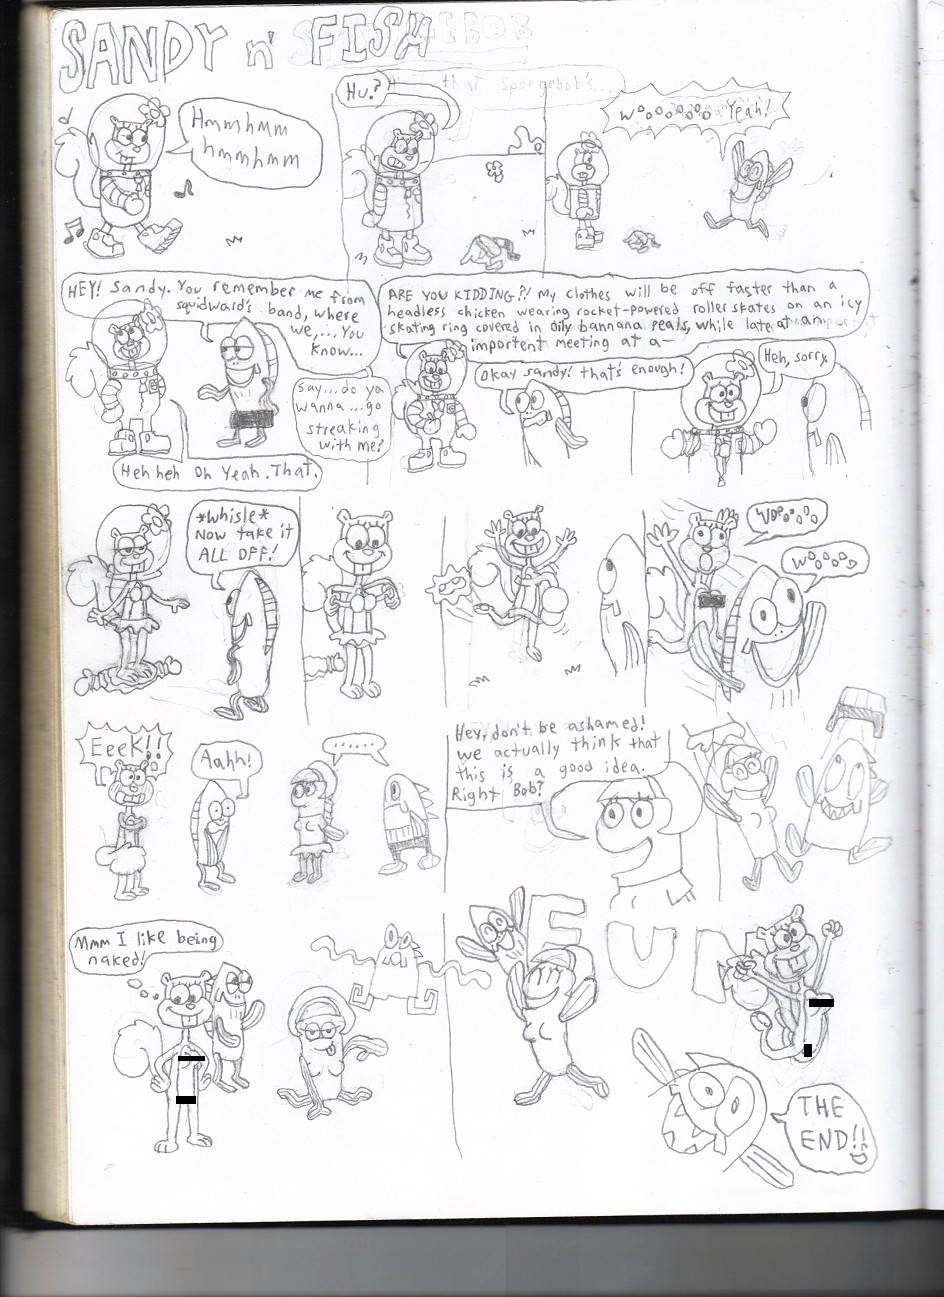 SANDY n' FISH
Hmmhmm
hmmhmm
Hu?
that Spongebob's...
Wooooooo Yeah!
HEY! Sandy. You remember me from
squidward's band, where
we,... You
know...
Heh heh Oh Yeah. That.
Say...do ya
wanna...go
streaking
with me?
ARE YOU KIDDING?! My clothes will be off faster than a
headless chicken wearing rocket-powered roller skates on an icy
skating ring covered in oily bannana peals, while late at an
importent meeting at a-
Okay sandy! that's enough!
Heh, sorry.
*whisle*
NOW take it
ALL OFF!
WOooooo
Wooooo
Eeek!!
Aahh!
......
Hey, don't be ashamed!
we actually think that
this is a good idea.
Right Bob?
Mmm I like being
naked!
FUN
THE
END!!